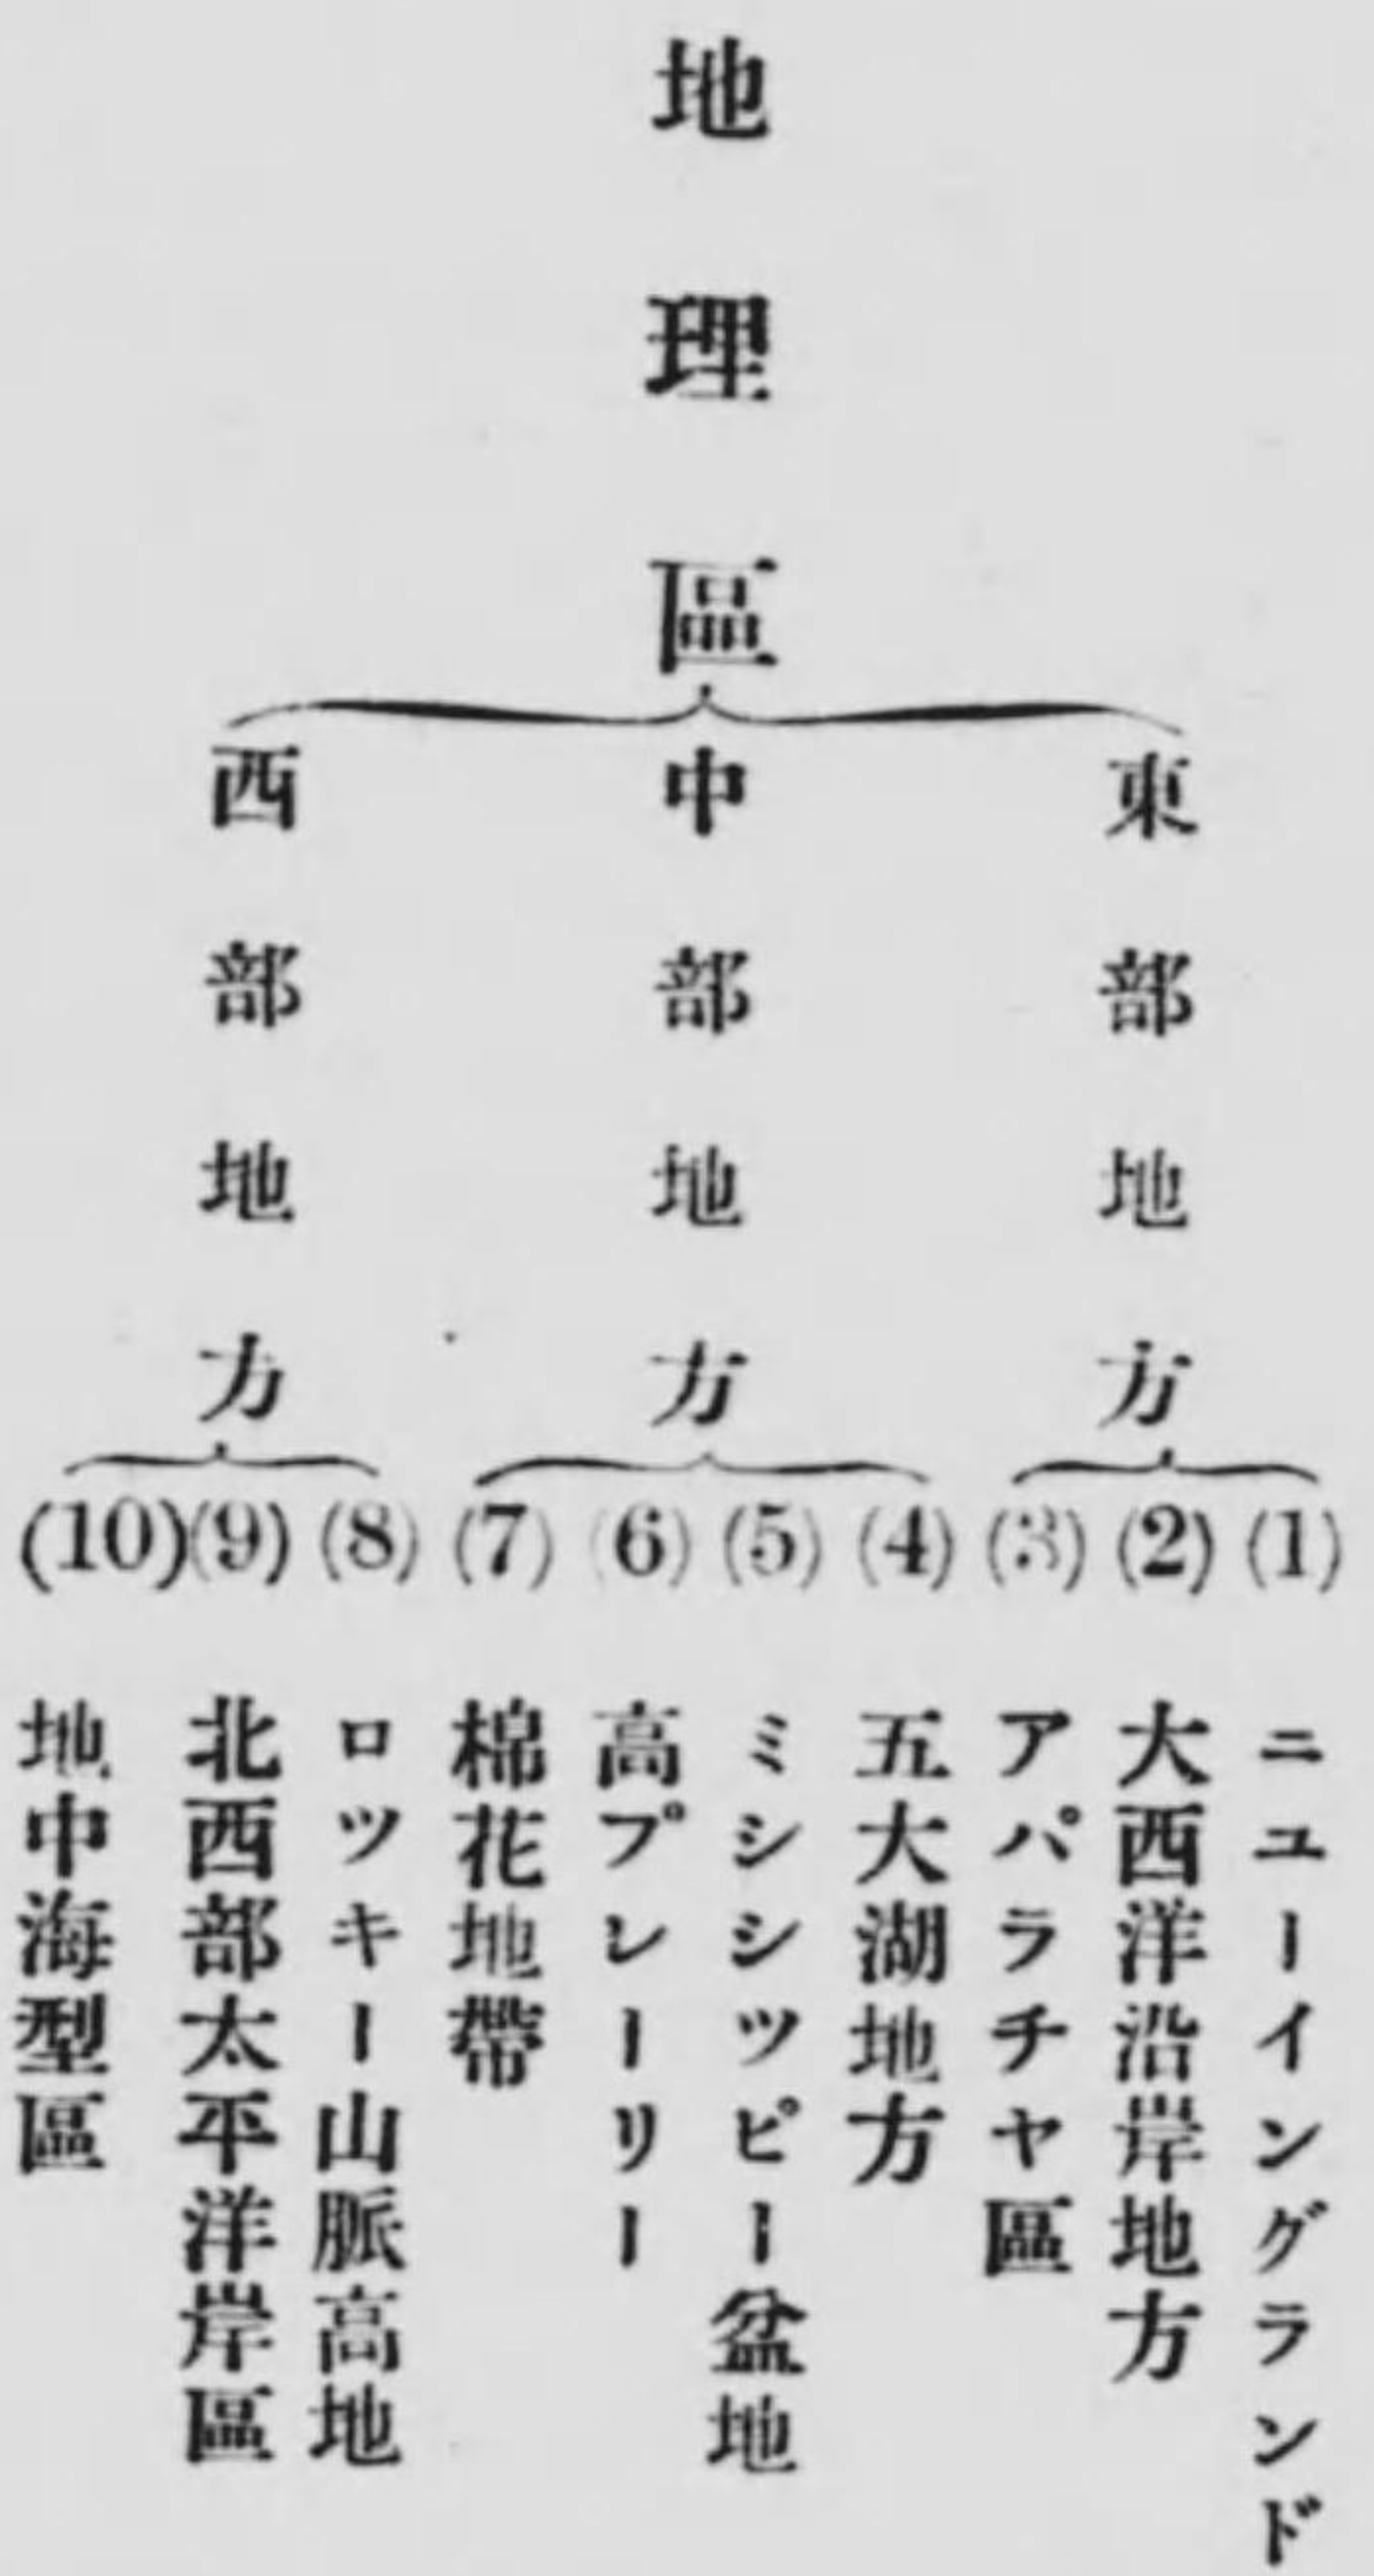 地理區
東部地方
(1) ニユーイングランド
(2) 大西洋沿岸地方
(3) アパラチヤ區
中部地方
(4) 五大湖地方
(5) ミシシツピー盆地
(6) 高プレーリー
(7) 棉花地帶
西部地方
(8) ロツキー山脈高地
(9) 北西部太平洋岸區
(10) 地中海型區